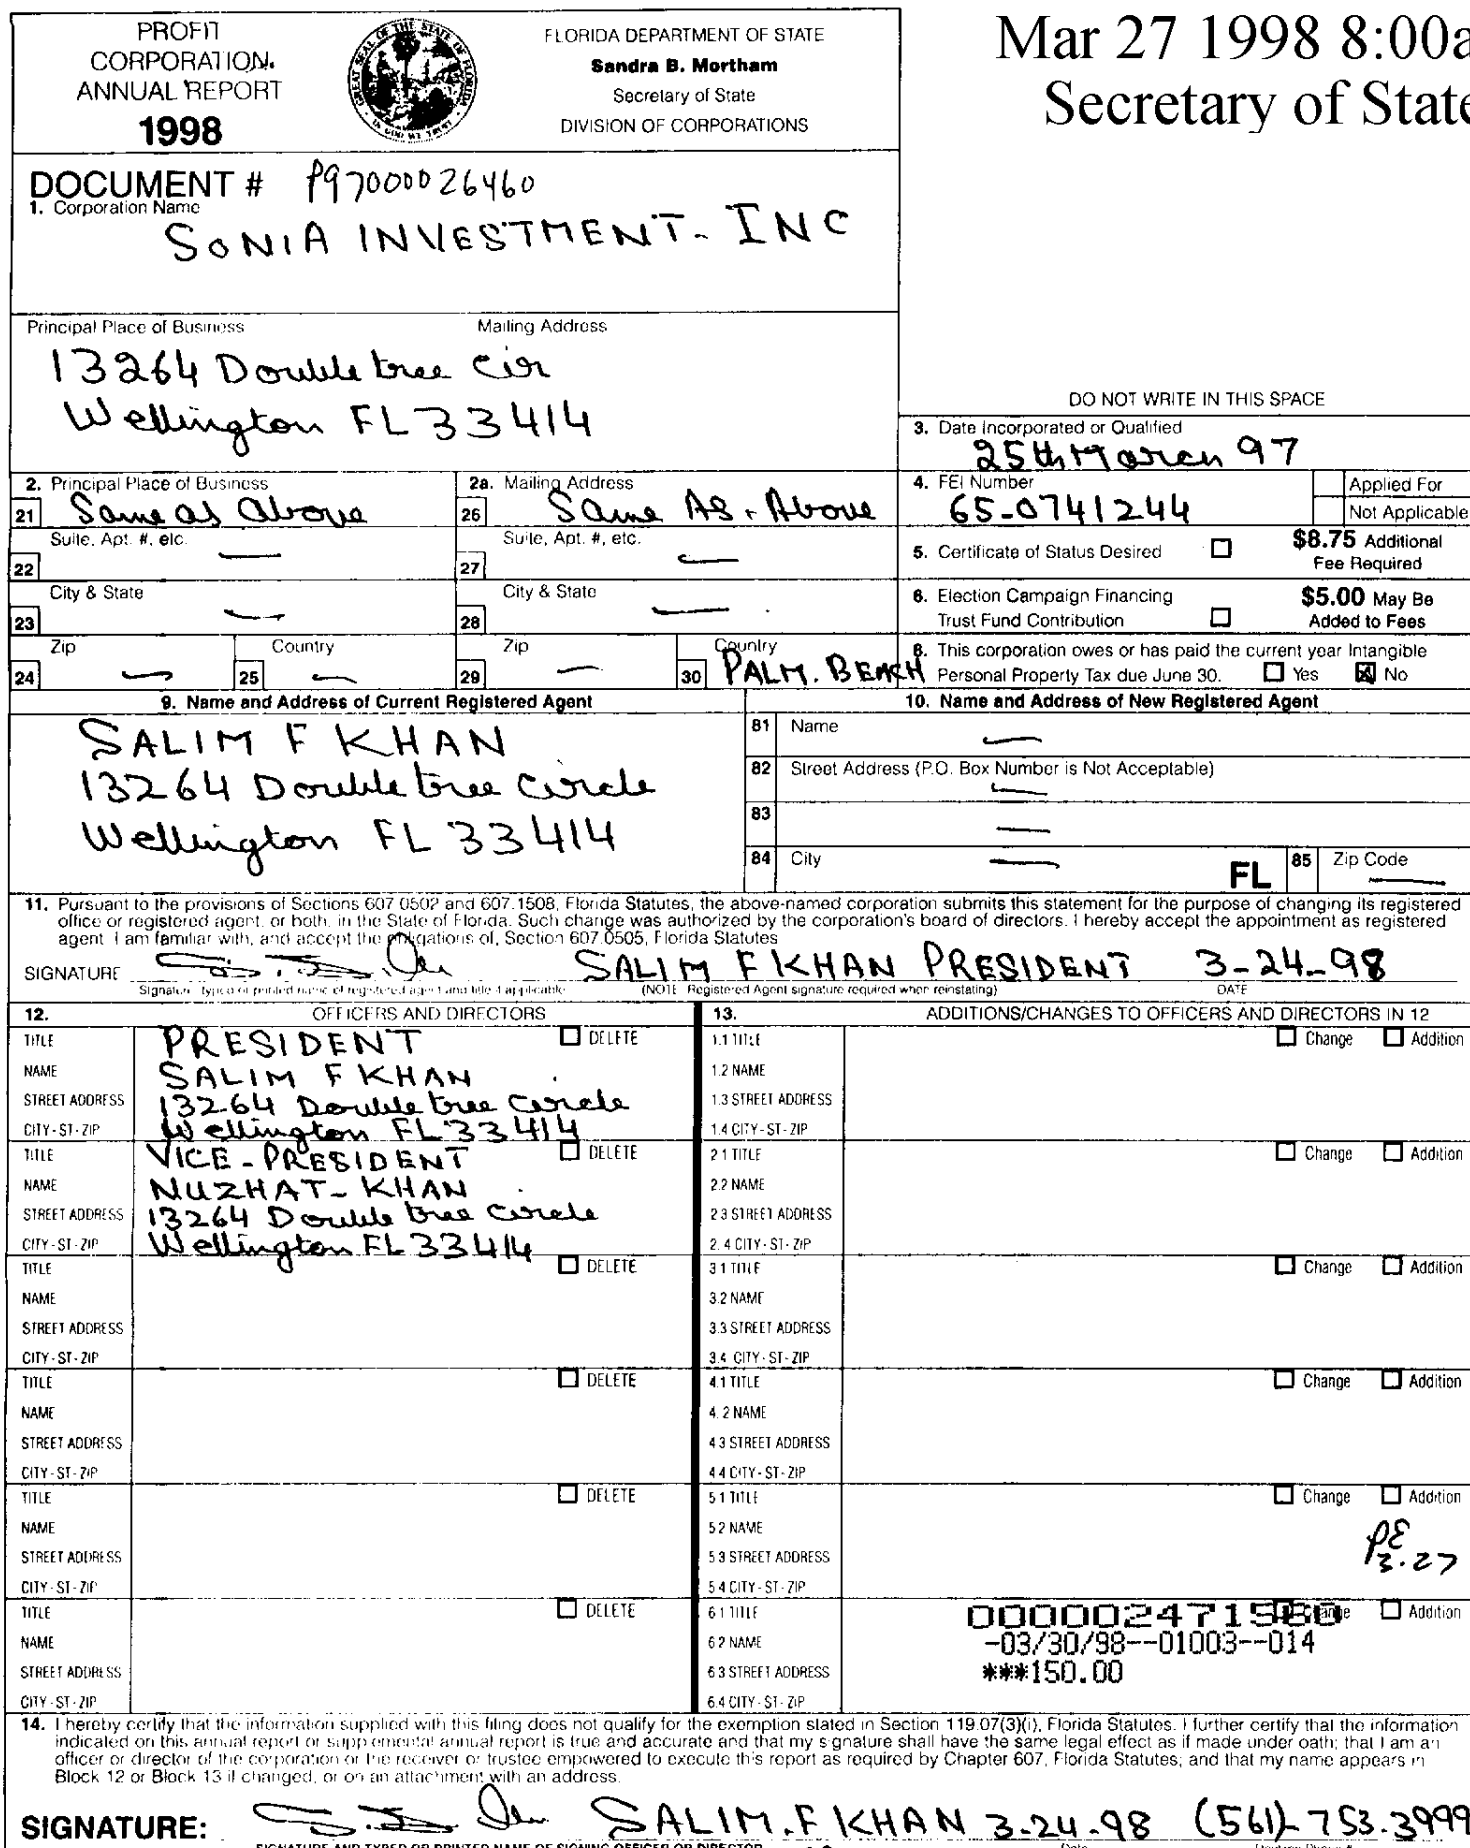 PROFIT
CORPORATION
ANNUAL REPORT
1998
FLORIDA DEPARTMENT OF STATE
Sandra B. Mortham
Secretary of State
DIVISION OF CORPORATIONS
Mar 27 1998 8:00a
Secretary of State
DOCUMENT # P97000026460
1. Corporation Name
SONIA INVESTMENT- INC
Principal Place of Business Mailing Address
13264 Doubletree Cir
Wellington FL 33414
DO NOT WRITE IN THIS SPACE
3. Date Incorporated or Qualified
25th March 97
2. Principal Place of Business
21 Same as above
2a. Mailing Address
26 Same As. Above
4. FEI Number
65-0741244
Applied For
Not Applicable
Suite, Apt. #, etc.
22 —
Suite, Apt. #, etc.
27 —
5. Certificate of Status Desired ☐ $8.75 Additional
Fee Required
City & State
23 —
City & State
28 —
6. Election Campaign Financing
Trust Fund Contribution ☐ $5.00 May Be
Added to Fees
Zip
24 —
Country
25 —
Zip
29 —
Country
30 PALM. BEACH
8. This corporation owes or has paid the current year Intangible
Personal Property Tax due June 30. ☐ Yes ☒ No
9. Name and Address of Current Registered Agent
SALIM F KHAN
13264 Doubletree Circle
Wellington FL 33414
10. Name and Address of New Registered Agent
81 Name
—
82 Street Address (P.O. Box Number is Not Acceptable)
—
83
—
84 City — FL 85 Zip Code
—
11. Pursuant to the provisions of Sections 607.0502 and 607.1508, Florida Statutes, the above-named corporation submits this statement for the purpose of changing its registered
office or registered agent, or both, in the State of Florida. Such change was authorized by the corporation's board of directors. I hereby accept the appointment as registered
agent. I am familiar with, and accept the obligations of, Section 607.0505, Florida Statutes
SIGNATURE SALIM F KHAN PRESIDENT 3-24-98
Signature, typed or printed name of registered agent and title if applicable (NOTE Registered Agent signature required when reinstating) DATE
12. OFFICERS AND DIRECTORS
TITLE PRESIDENT ☐ DELETE
NAME SALIM F KHAN
STREET ADDRESS 13264 Doubletree Circle
CITY-ST-ZIP Wellington FL 33414
TITLE VICE-PRESIDENT ☐ DELETE
NAME NUZHAT- KHAN
STREET ADDRESS 13264 Double tree Circle
CITY-ST-ZIP Wellington FL 33414
TITLE ☐ DELETE
NAME
STREET ADDRESS
CITY-ST-ZIP
TITLE ☐ DELETE
NAME
STREET ADDRESS
CITY-ST-ZIP
TITLE ☐ DELETE
NAME
STREET ADDRESS
CITY-ST-ZIP
TITLE ☐ DELETE
NAME
STREET ADDRESS
CITY-ST-ZIP
13. ADDITIONS/CHANGES TO OFFICERS AND DIRECTORS IN 12
1.1 TITLE ☐ Change ☐ Addition
1.2 NAME
1.3 STREET ADDRESS
1.4 CITY-ST-ZIP
2.1 TITLE ☐ Change ☐ Addition
2.2 NAME
2.3 STREET ADDRESS
2.4 CITY-ST-ZIP
3.1 TITLE ☐ Change ☐ Addition
3.2 NAME
3.3 STREET ADDRESS
3.4 CITY-ST-ZIP
4.1 TITLE ☐ Change ☐ Addition
4.2 NAME
4.3 STREET ADDRESS
4.4 CITY-ST-ZIP
5.1 TITLE ☐ Change ☐ Addition
5.2 NAME
5.3 STREET ADDRESS
5.4 CITY-ST-ZIP
PE
3.27
6.1 TITLE ☐ Addition
6.2 NAME -03/30/98--01003--014
6.3 STREET ADDRESS ***150.00
6.4 CITY-ST-ZIP
14. I hereby certify that the information supplied with this filing does not qualify for the exemption stated in Section 119.07(3)(i), Florida Statutes. I further certify that the information
indicated on this annual report or supplemental annual report is true and accurate and that my signature shall have the same legal effect as if made under oath; that I am an
officer or director of the corporation or the receiver or trustee empowered to execute this report as required by Chapter 607, Florida Statutes; and that my name appears in
Block 12 or Block 13 if changed, or on an attachment with an address.
SIGNATURE: SALIM.F KHAN 3-24-98 (561)-753-3999